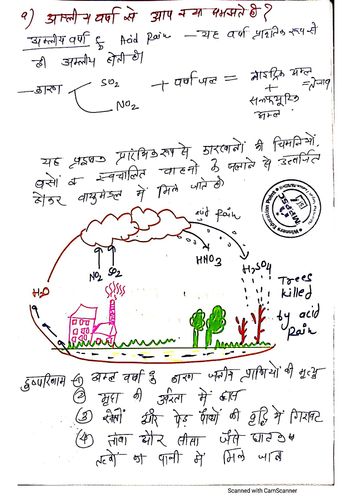 a) अम्लीय वर्षा से आप क्या समझते हैं?
अम्लीय वर्षा Acid Rain - यह वर्षा प्राकृतिक रूप से
ही अम्लीय होती है।
कारण
SO2
NO2
+ वर्षा जल = नाइट्रिक अम्ल
+
सल्फ्यूरिक
अम्ल
यह प्रारंभिक रूप से कारखानों की चिमनियों,
बसों व स्वचालित वाहनों के जलाने से उत्सर्जित
होकर वायुमंडल में मिल जाते है।
MPPSC
acid Rain
NO2 SO2
HNO3
H2SO4
H2O
Trees
killed
by acid
Rain
दुष्परिणाम ① अम्ल वर्षा के कारण जलीय प्राणियों की मृत्यु
②
मृदा की
में
③ खेतों और पेड़ पौधों की वृद्धि में गिरावट
④ तांबा और सीसा जैसे घातक
तत्वों का पानी में मिल जाना
Scanned with CamScanner